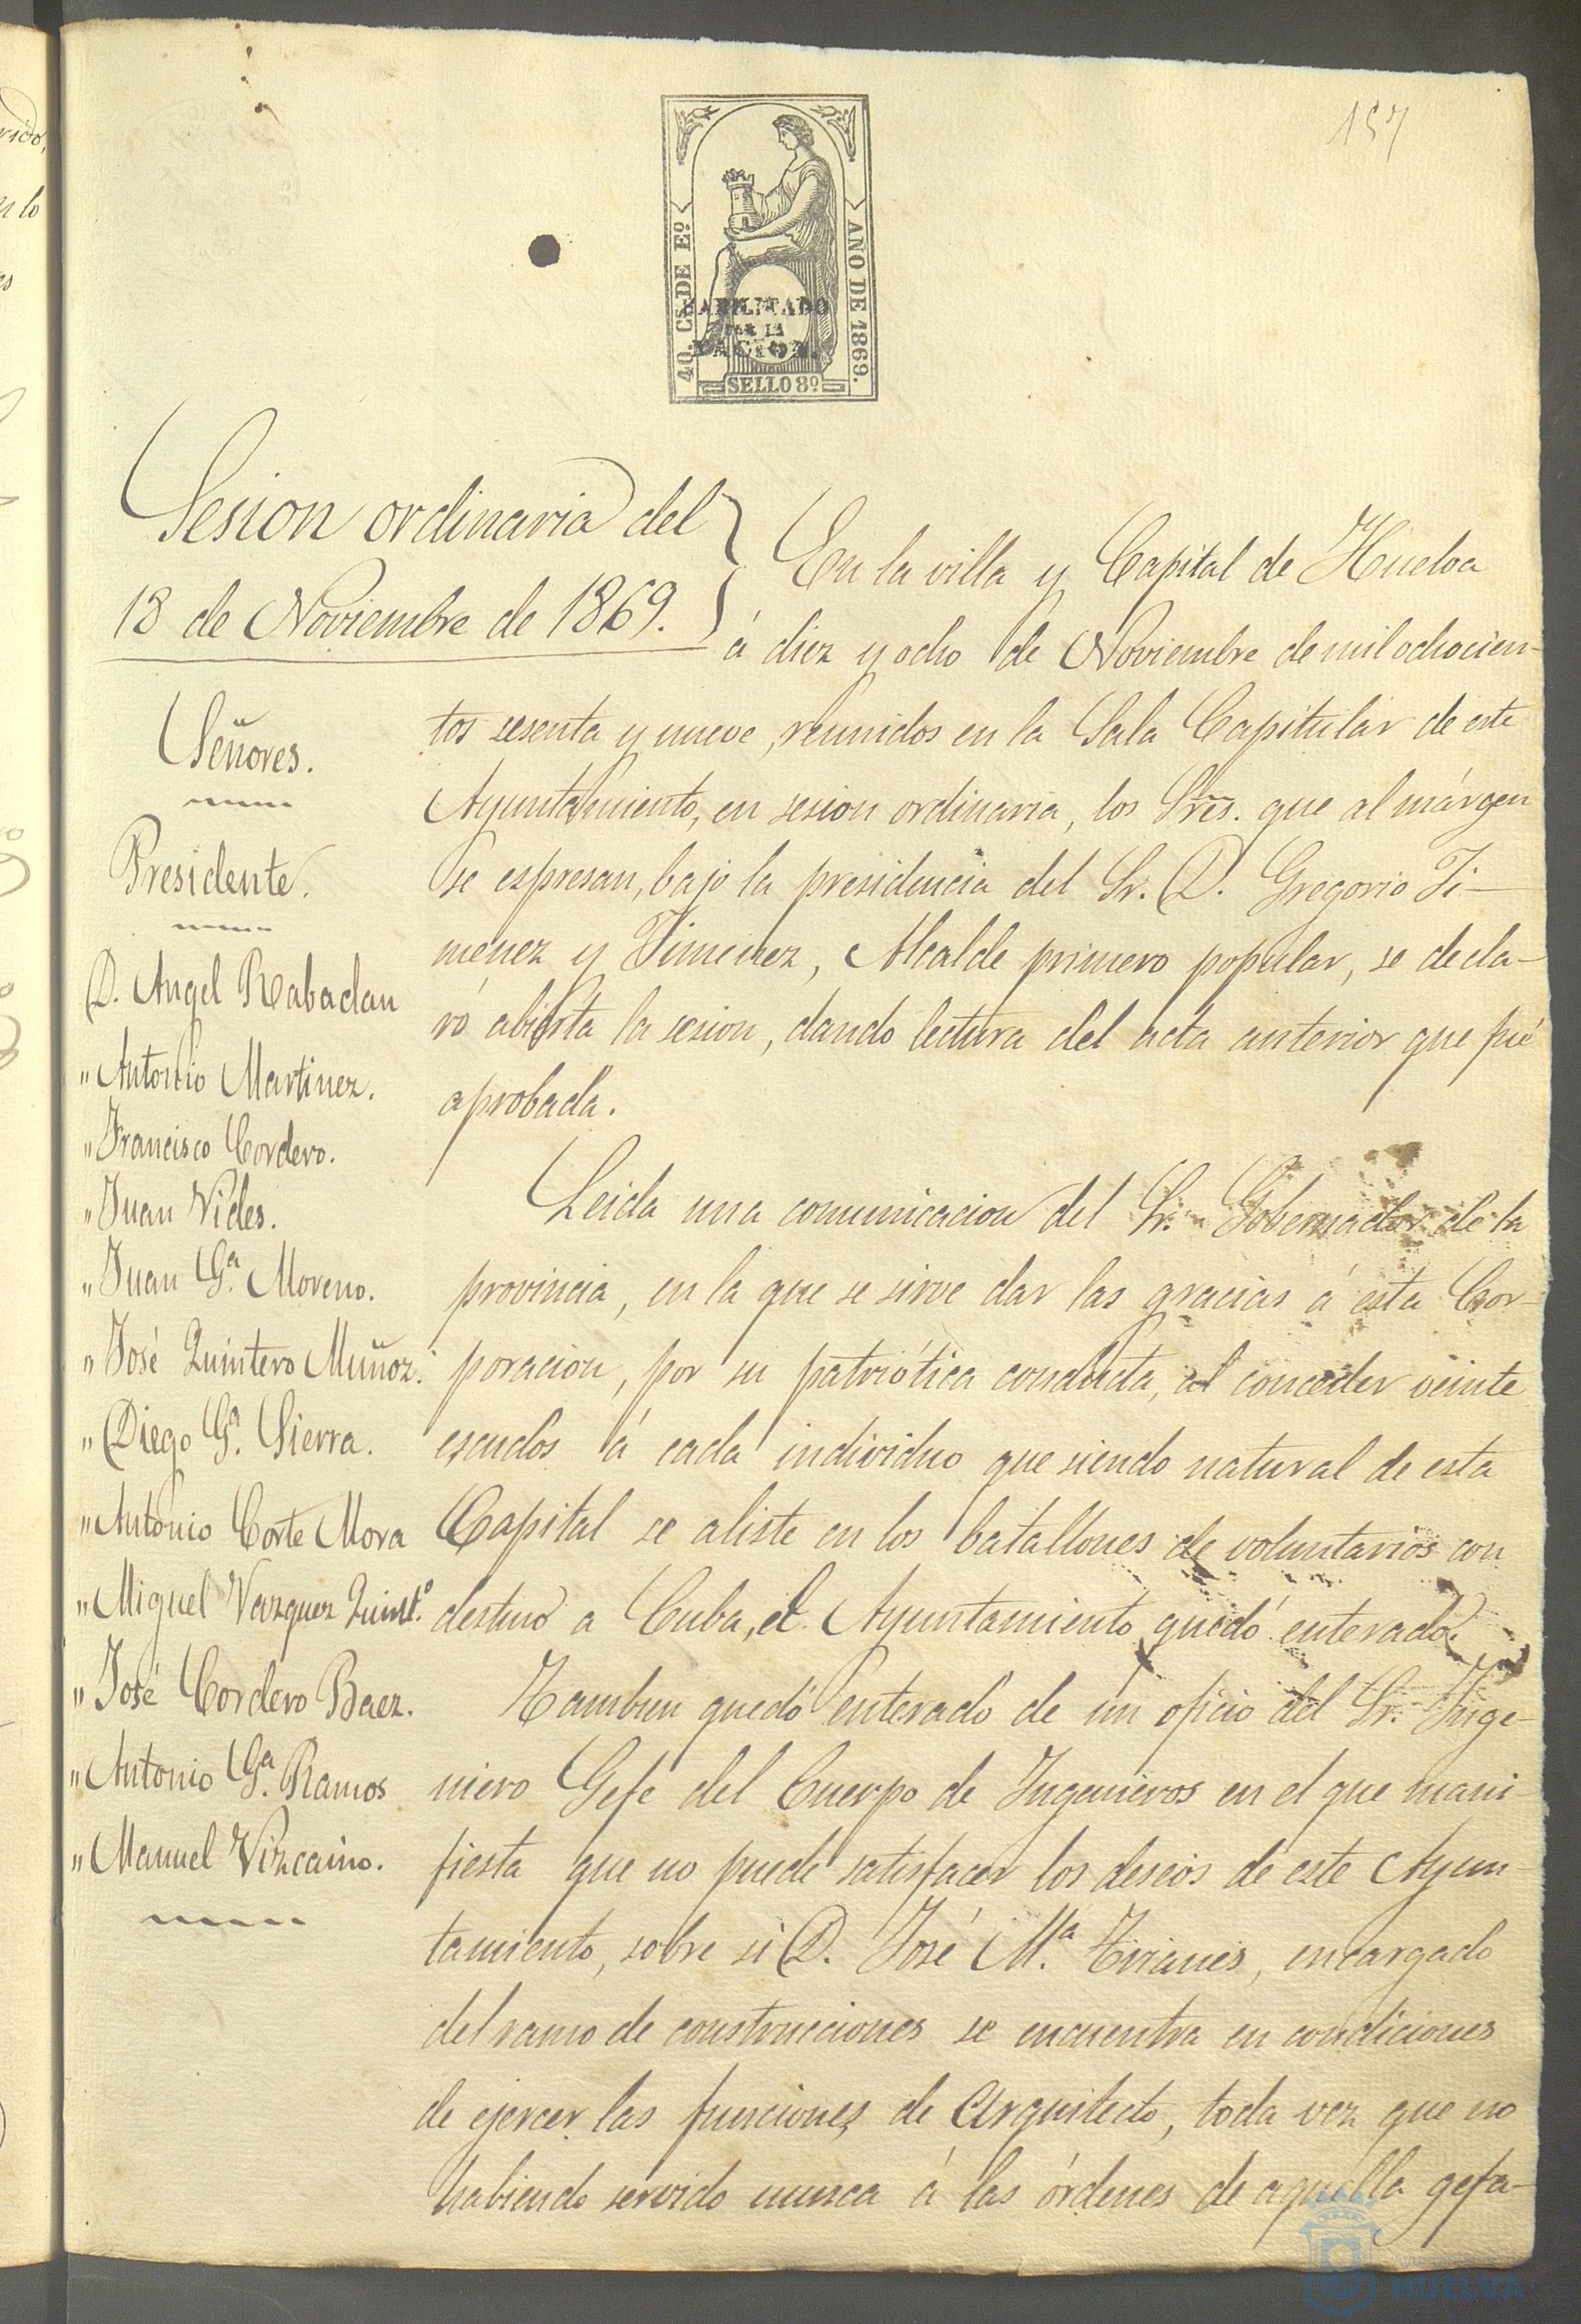 157
40. Cs. DE Eº.
AÑO DE 1869.
HABILITADO
POR LA
NACION.
SELLO 8º
Sesion ordinaria del
18 de Noviembre de 1869.
Señores.
Presidente.
D. Angel Rabadan
" Antonio Martinez.
" Francisco Cordero.
" Juan Vides.
" Juan Gª. Moreno.
" José Quintero Muñoz.
" Diego Gª. Sierra.
" Antonio Corte Mora
" Miguel Vazquez Quintº.
" José Cordero Baez.
" Antonio Gª. Ramos
" Manuel Vizcaino.
En la villa y Capital de Huelva
á diez y ocho de Noviembre de mil ochocien-
tos sesenta y nueve, reunidos en la Sala Capitular de este
Ayuntamiento, en sesion ordinaria, los Sres. que al márgen
se espresan, bajo la presidencia del Sr. D. Gregorio Ji-
menez y Jimenez, Alcalde primero popular, se decla-
ró abierta la sesion, dando lectura del acta anterior que fué
aprobada.
Leida una comunicacion del Sr. Gobernador de la
provincia, en la que se sirve dar las gracias á esta Cor-
poracion, por su patriótica conducta, al conceder veinte
escudos á cada individuo que siendo natural de esta
Capital se aliste en los batallones de voluntarios con
destino a Cuba, el Ayuntamiento quedó enterado.
Tambien quedó enterado de un oficio del Sr. Inge-
niero Gefe del Cuerpo de Ingenieros en el que mani-
fiesta que no puede satisfacer los deseos de este Ayun-
tamiento, sobre si D. José Mª. Trianes, encargado
del ramo de construcciones se encuentra en condiciones
de ejercer las funciones de Arquitecto, toda vez que no
habiendo servido nunca á las órdenes de aquella gefa-
HUELVA